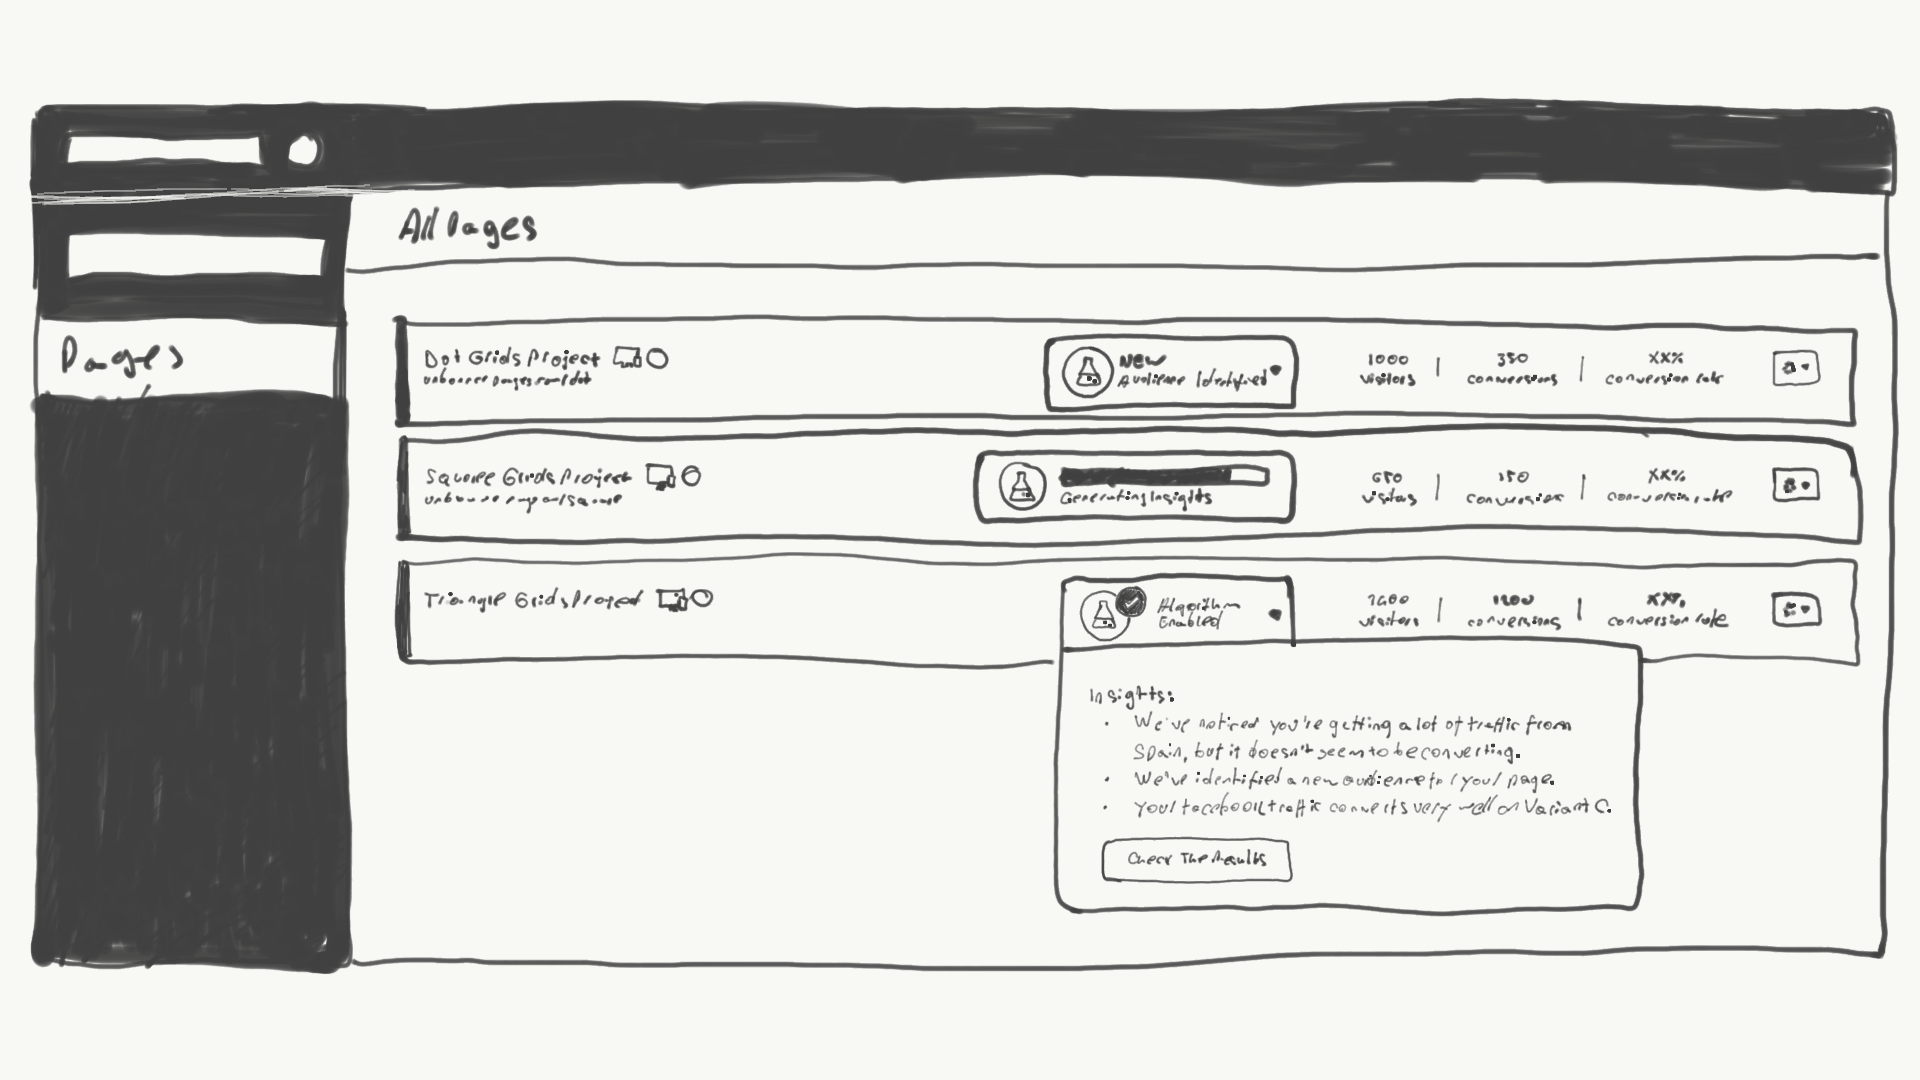 All Pages
Pages
Dot Grids Project
NEW
Audience Identified
1000
visitors
350
conversions
XX%
conversion rate
Square Grids Project
Generating Insights
650
visitors
150
conversions
XX%
conversion rate
Triangle Grids Project
Algorithm
Enabled
visitors
1200
conversions
XX%
conversion rate
Insights:
• We've noticed you're getting a lot of traffic from
Spain, but it doesn't seem to be converting.
• We've identified a new audience for your page.
• Your facebook traffic converts very well on Variant C.
Check The Results